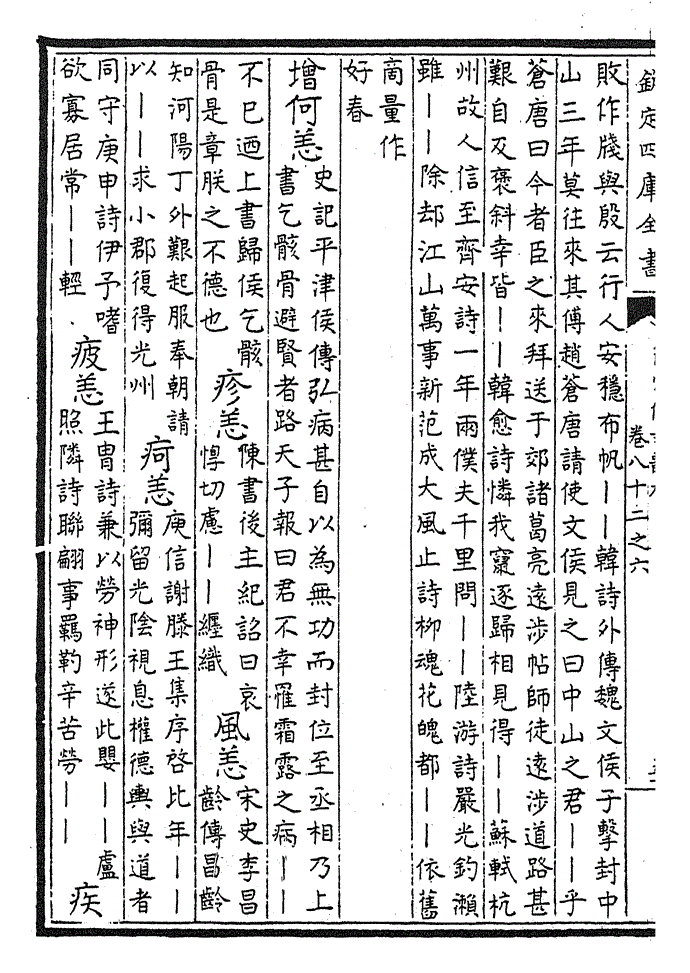 欽定四庫全書
卷八十二之六
敗作牋與殷云行人安穩布帆——韓詩外傳魏文侯子擊封中
山三年莫往來其傅趙蒼唐請使文侯見之曰中山之君——乎
蒼唐曰今者臣之來拜送于郊諸葛亮遠涉帖師徒遠涉道路甚
艱自及褒斜幸皆——韓愈詩憐我竄逐歸相見得——蘇軾杭
州故人信至齊安詩一年兩僕夫千里問——陸游詩嚴光釣瀨
雖——除却江山萬事新范成大風止詩柳魂花魄都——依舊
商量作
好春
增何恙
史記平津侯傳弘病甚自以為無功而封位至丞相乃上
書乞骸骨避賢者路天子報曰君不幸罹霜露之病——
不已迺上書歸侯乞骸
骨是章朕之不德也
疹恙
陳書後主紀詔曰哀
惸切慮——纏織
風恙
宋史李昌
齡傳昌齡
知河陽丁外艱起服奉朝請
以——求小郡復得光州
疴恙
庾信謝滕王集序啓比年——
彌留光陰視息權德輿與道者
同守庚申詩伊予嗜
欲寡居常——輕
疲恙
王胄詩兼以勞神形遂此嬰——盧
照隣詩聯翩事羈靮辛苦勞——
疾